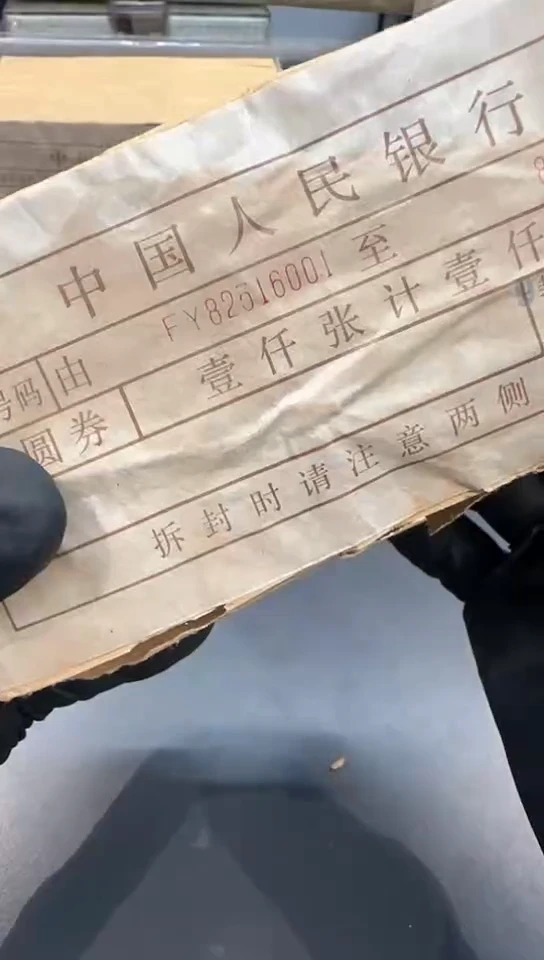 中国人民银行
号码 由 FY82516001 至 8
圆券 壹仟张计壹仟
拆封时请注意两侧